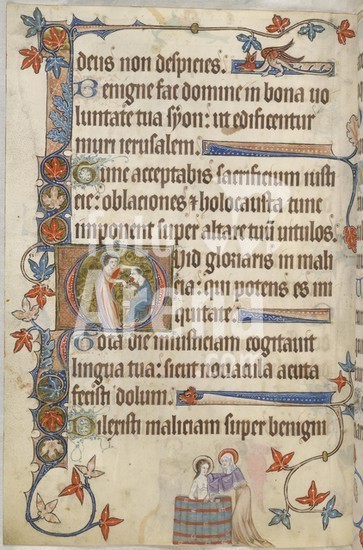 deus non despicies.
Benigne fac domine in bona uo
luntate tua syon: ut edificentur
muri ierusalem.
Tunc acceptabis sacrificium iusti
cie: oblaciones ⁊ holocausta tunc
imponent super altare tuū uitulos.
Quid gloriaris in mali
cia: qui potens es in
iquitate.
Tota die iniusticiam cogitauit
lingua tua: sicut nouacula acuta
fecisti dolum.
Dilexisti maliciam super benigni
foto
Arena
.com